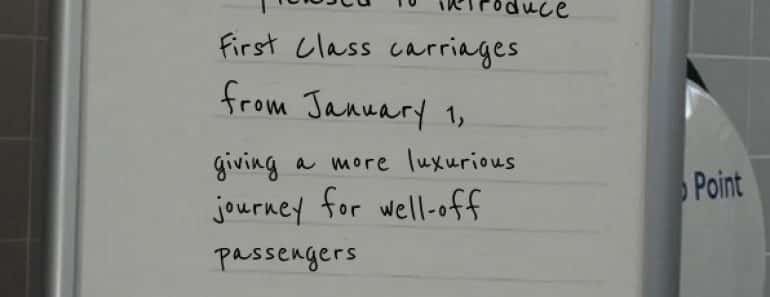 pleased to introduce
First Class carriages
from January 1,
giving a more luxurious
journey for well-off
passengers
Point